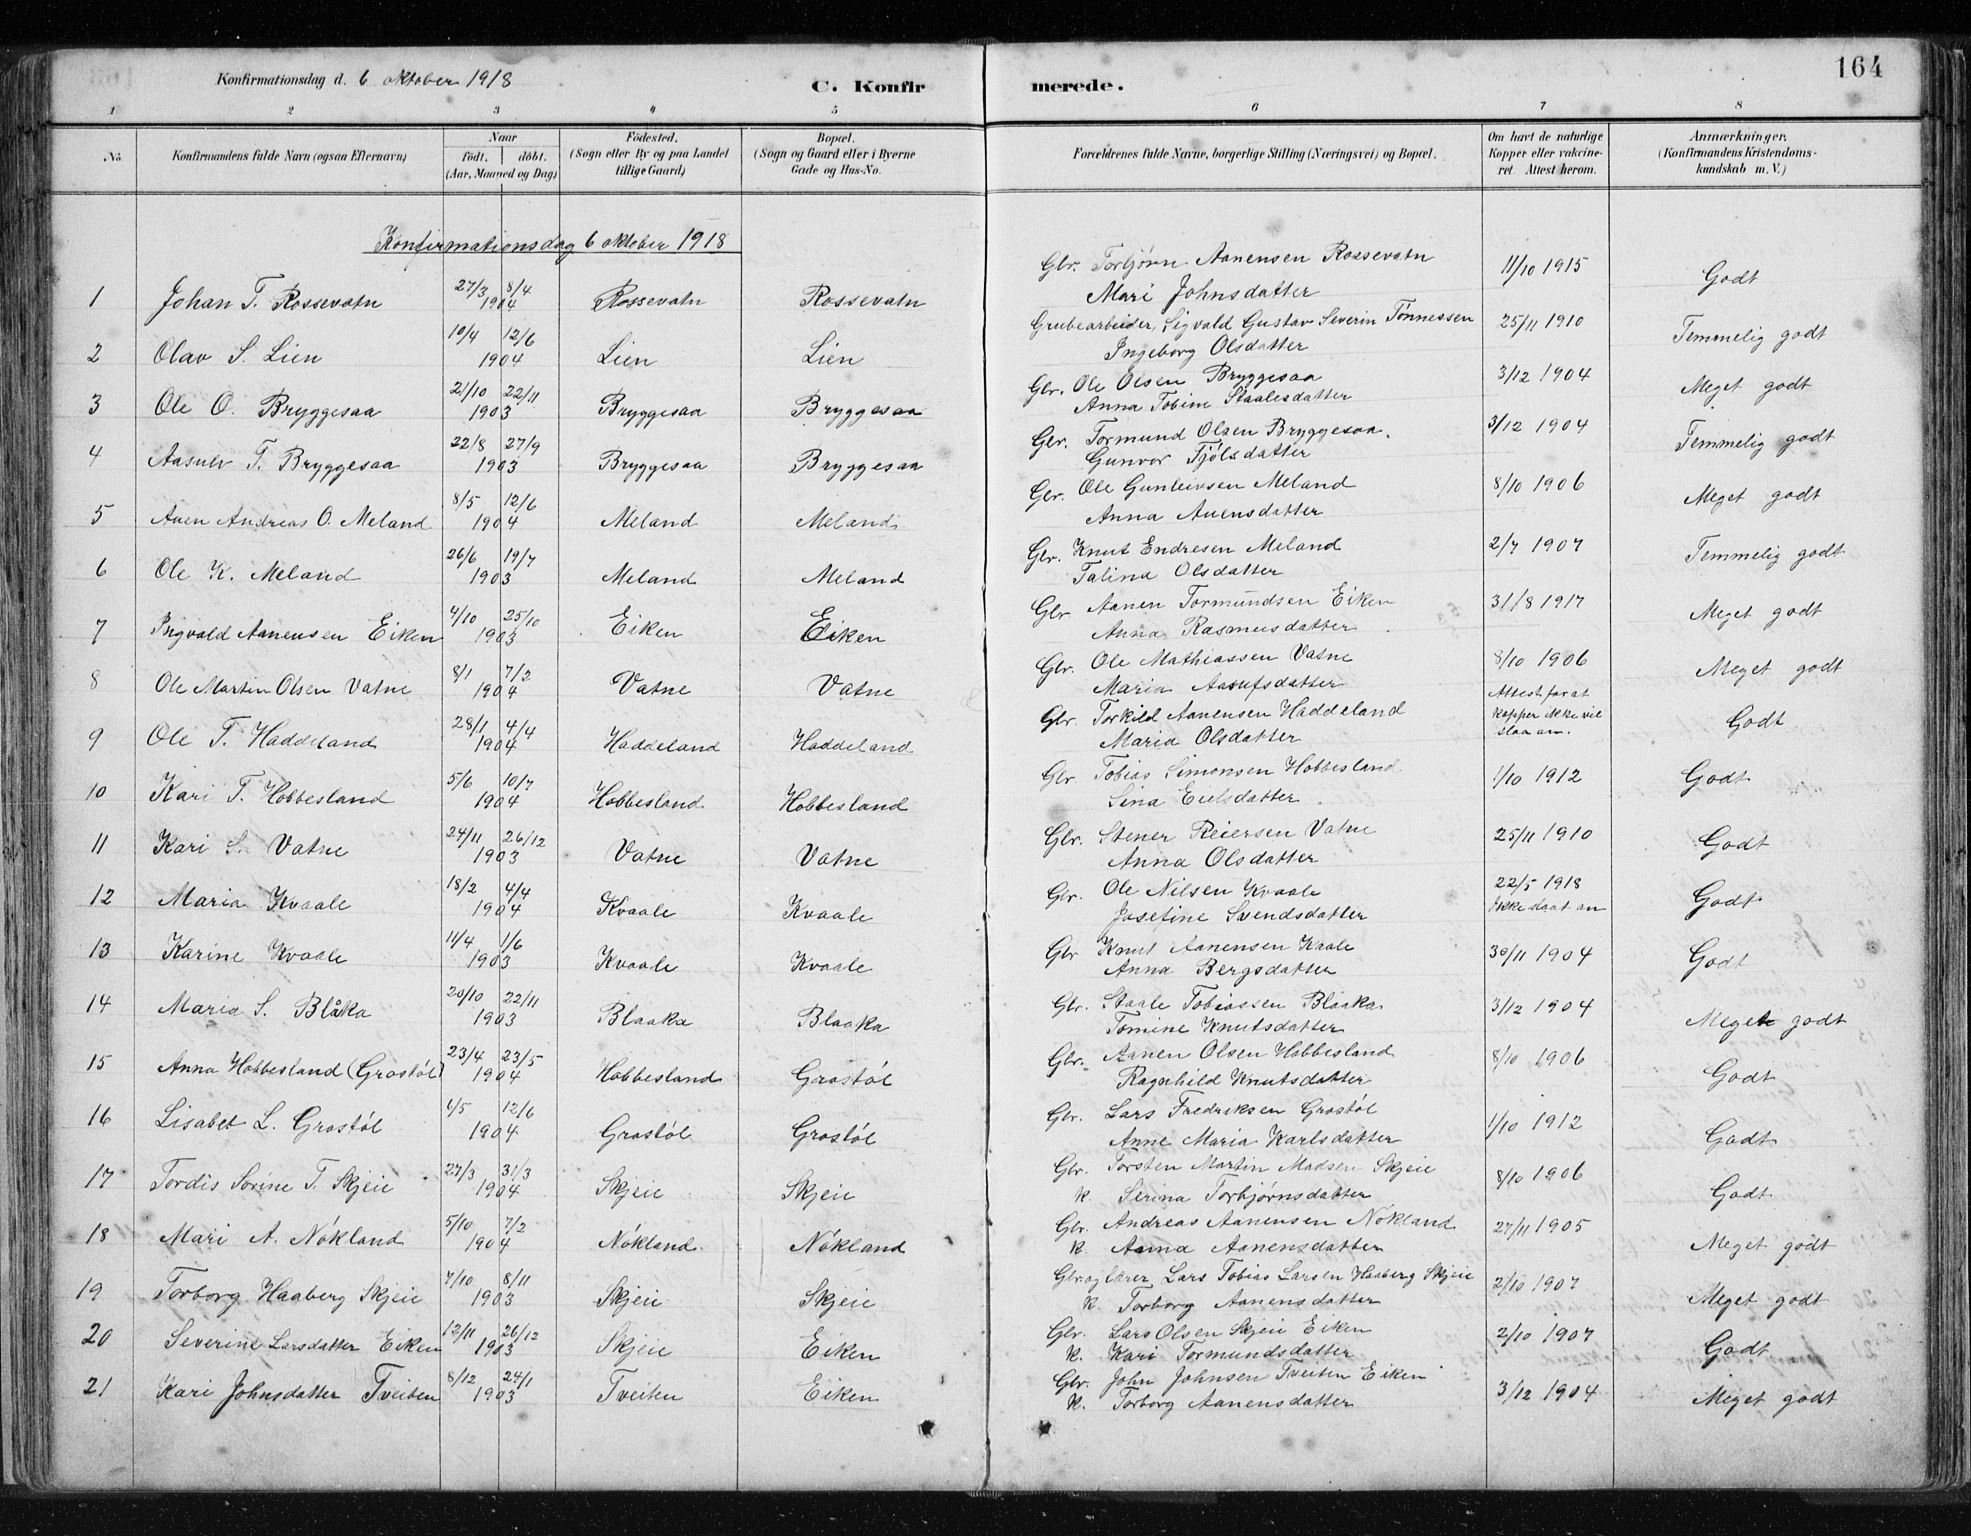 Konfirmationsdag d. 6 oktober 1918
C. Konfirmerede.
164
1 2 3 4 5 6 7 8
No. | Konfirmandens fulde Navn (ogsaa Efternavn) | Naar födt. döbt. (Aar, Maaned og Dag) | Födested. (Sogn eller By og paa Landet tillige Gaard) | Bopæl. (Sogn og Gaard eller i Byerne Gade og Hus-No. | Forældrenes fulde Navne, borgerlige Stilling (Næringsvei) og Bopæl. | Om havt de naturlige Kopper eller vakcineret. Attest herom. | Anmærkninger. (Konfirmandens Kristendomskundskab m. V.)
Konfirmationsdag 6 oktober 1918
1 Johan T. Rossevatn 27/3 8/4 1904 Rossevatn Rossevatn Gbr. Torbjørn Aanensen Rossevatn Mari Johnsdatter 11/10 1915 Godt
2 Olav S. Lien 19/4 12/6 1904 Lien Lien Grubearbeider, Sigvald Gustav Severin Tønnessen Ingeborg Olsdatter 25/11 1910 Temmelig godt
3 Ole O. Bryggesaa 21/10 22/11 1903 Bryggesaa Bryggesaa Gbr. Ole Olsen Bryggesaa Anna Tobine Staalesdatter 3/12 1904 Meget godt
4 Aasulv T. Bryggesaa 22/8 27/9 1903 Bryggesaa Bryggesaa Gbr. Tormund Olsen Bryggesaa. Gunvor Fjølsdatter 3/12 1904 Temmelig godt
5 Auen Andreas O. Meland 8/5 12/6 1904 Meland Meland Gbr. Ole Gunleivsen Meland Anna Auensdatter 8/10 1906 Meget godt
6 Ole K. Meland 26/6 19/7 1903 Meland Meland Gbr. Knut Endresen Meland Talina Olsdatter 2/7 1907 Temmelig godt
7 Ingvald Aanensen Eiken 4/10 25/10 1903 Eiken Eiken Gbr Aanen Tormundsen Eiken Anna Rasmusdatter 31/8 1917 Meget godt
8 Ole Martin Olsen Vatne 8/1 7/2 1904 Vatne Vatne Gbr. Ole Mathiassen Vatne Maria Aasufsdatter 8/10 1906 Meget godt
9 Ole T. Haddeland 28/1 4/4 1904 Haddeland Haddeland Gbr. Torkild Aanensen Haddeland Maria Olsdatter Attest for at kopper ikke vil slaa an. Godt
10 Kari T. Hobbesland 5/6 10/7 1904 Hobbesland Hobbesland Gbr Tobias Simonsen Hobbesland Sina Eielsdatter 1/10 1912 Godt
11 Kari S. Vatne 24/11 26/12 1903 Vatne Vatne Gbr. Stener Reiersen Vatne Anna Olsdatter 25/11 1910 Godt
12 Maria Kvaale 18/2 4/4 1904 Kvaale Kvaale Gbr. Ole Nilsen Kvaale Josefine Svendsdatter 22/5 1918 Ikke slaat an Godt
13 Karine Kvaale 11/4 1/6 1903 Kvaale Kvaale Gbr Knut Aanensen Kaale Anna Bergsdatter 30/11 1904 Godt
14 Maria S. Blåka 20/10 22/11 1903 Blaaka Blaaka Gbr. Staale Tobiassen Blaaka Tomine Knutsdatter 3/12 1904 Meget godt
15 Anna Hobbesland (Grostøl) 23/4 23/5 1904 Hobbesland Grostøl Gbr. Aanen Olsen Hobbesland Ragnhild Knutsdatter 8/10 1906 Godt
16 Lisabet L. Grostøl 4/5 12/6 1904 Grostøl Grostøl Gbr. Lars Fredriksen Grostøl Anne Maria Karlsdatter 1/10 1912 Godt
17 Tordis Sorine T. Skjeie 27/3 31/3 1904 Skjeie Skjeie Gbr. Torsten Martin Madsen Skjeie k. Serina Torbjørnsdatter 8/10 1906 Godt
18 Mari A. Nökland 5/10 7/2 1904 Nökland Nökland Gbr. Andreas Aanensen Nökland k. Anna Aanensdatter 27/11 1905 Meget godt
19 Torborg Haaberg Skjeie 7/10 8/11 1903 Skjeie Skjeie Gbr og lærer Lars Tobias Larsen Haaberg Skjeie k. Torborg Aanensdatter 2/10 1907 Meget godt
20 Severine Larsdatter Eiken 12/11 26/12 1903 Skjeie Eiken Gbr. Lars Olsen Skjeie Eiken k. Kari Tormundsdatter 2/10 1907 Godt
21 Kari Johnsdatter Tveiten 8/12 24/1 1903 Tveiten Eiken Gbr. John Johnsen Tveiten Eiken k. Torborg Aanensdatter 3/12 1904 Meget godt